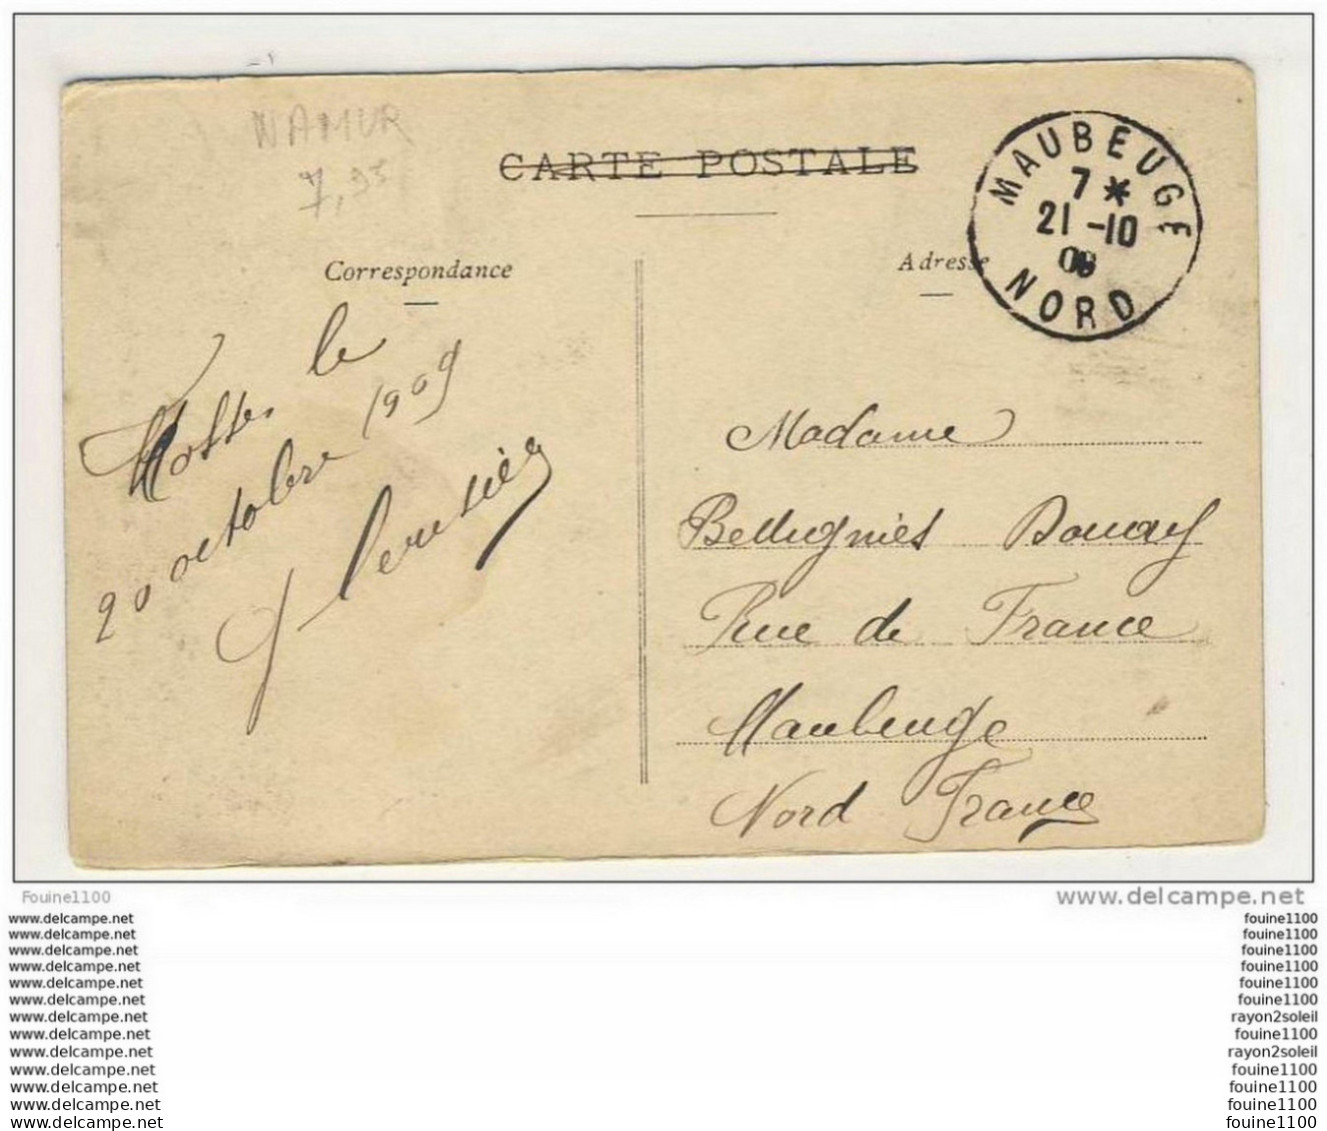 NAMUR
7,95
CARTE POSTALE
MAUBEUGE
7 *
21 -10
09
NORD
Correspondance
Adresse
le
20 octobre 1909
Madame
Bellugnies Douay
Rue de France
Maubeuge
Nord France
Fouine1100
www.delcampe.net
www.delcampe.net
fouine1100
www.delcampe.net
fouine1100
www.delcampe.net
fouine1100
www.delcampe.net
fouine1100
www.delcampe.net
fouine1100
www.delcampe.net
fouine1100
www.delcampe.net
rayon2soleil
www.delcampe.net
fouine1100
www.delcampe.net
rayon2soleil
www.delcampe.net
fouine1100
www.delcampe.net
fouine1100
www.delcampe.net
fouine1100
www.delcampe.net
fouine1100